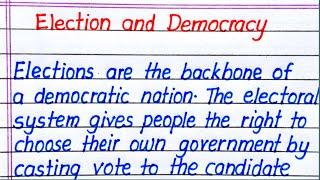 Election and Democracy
Elections are the backbone of
a democratic nation. The electoral
system gives people the right to
choose their own government by
casting vote to the candidate